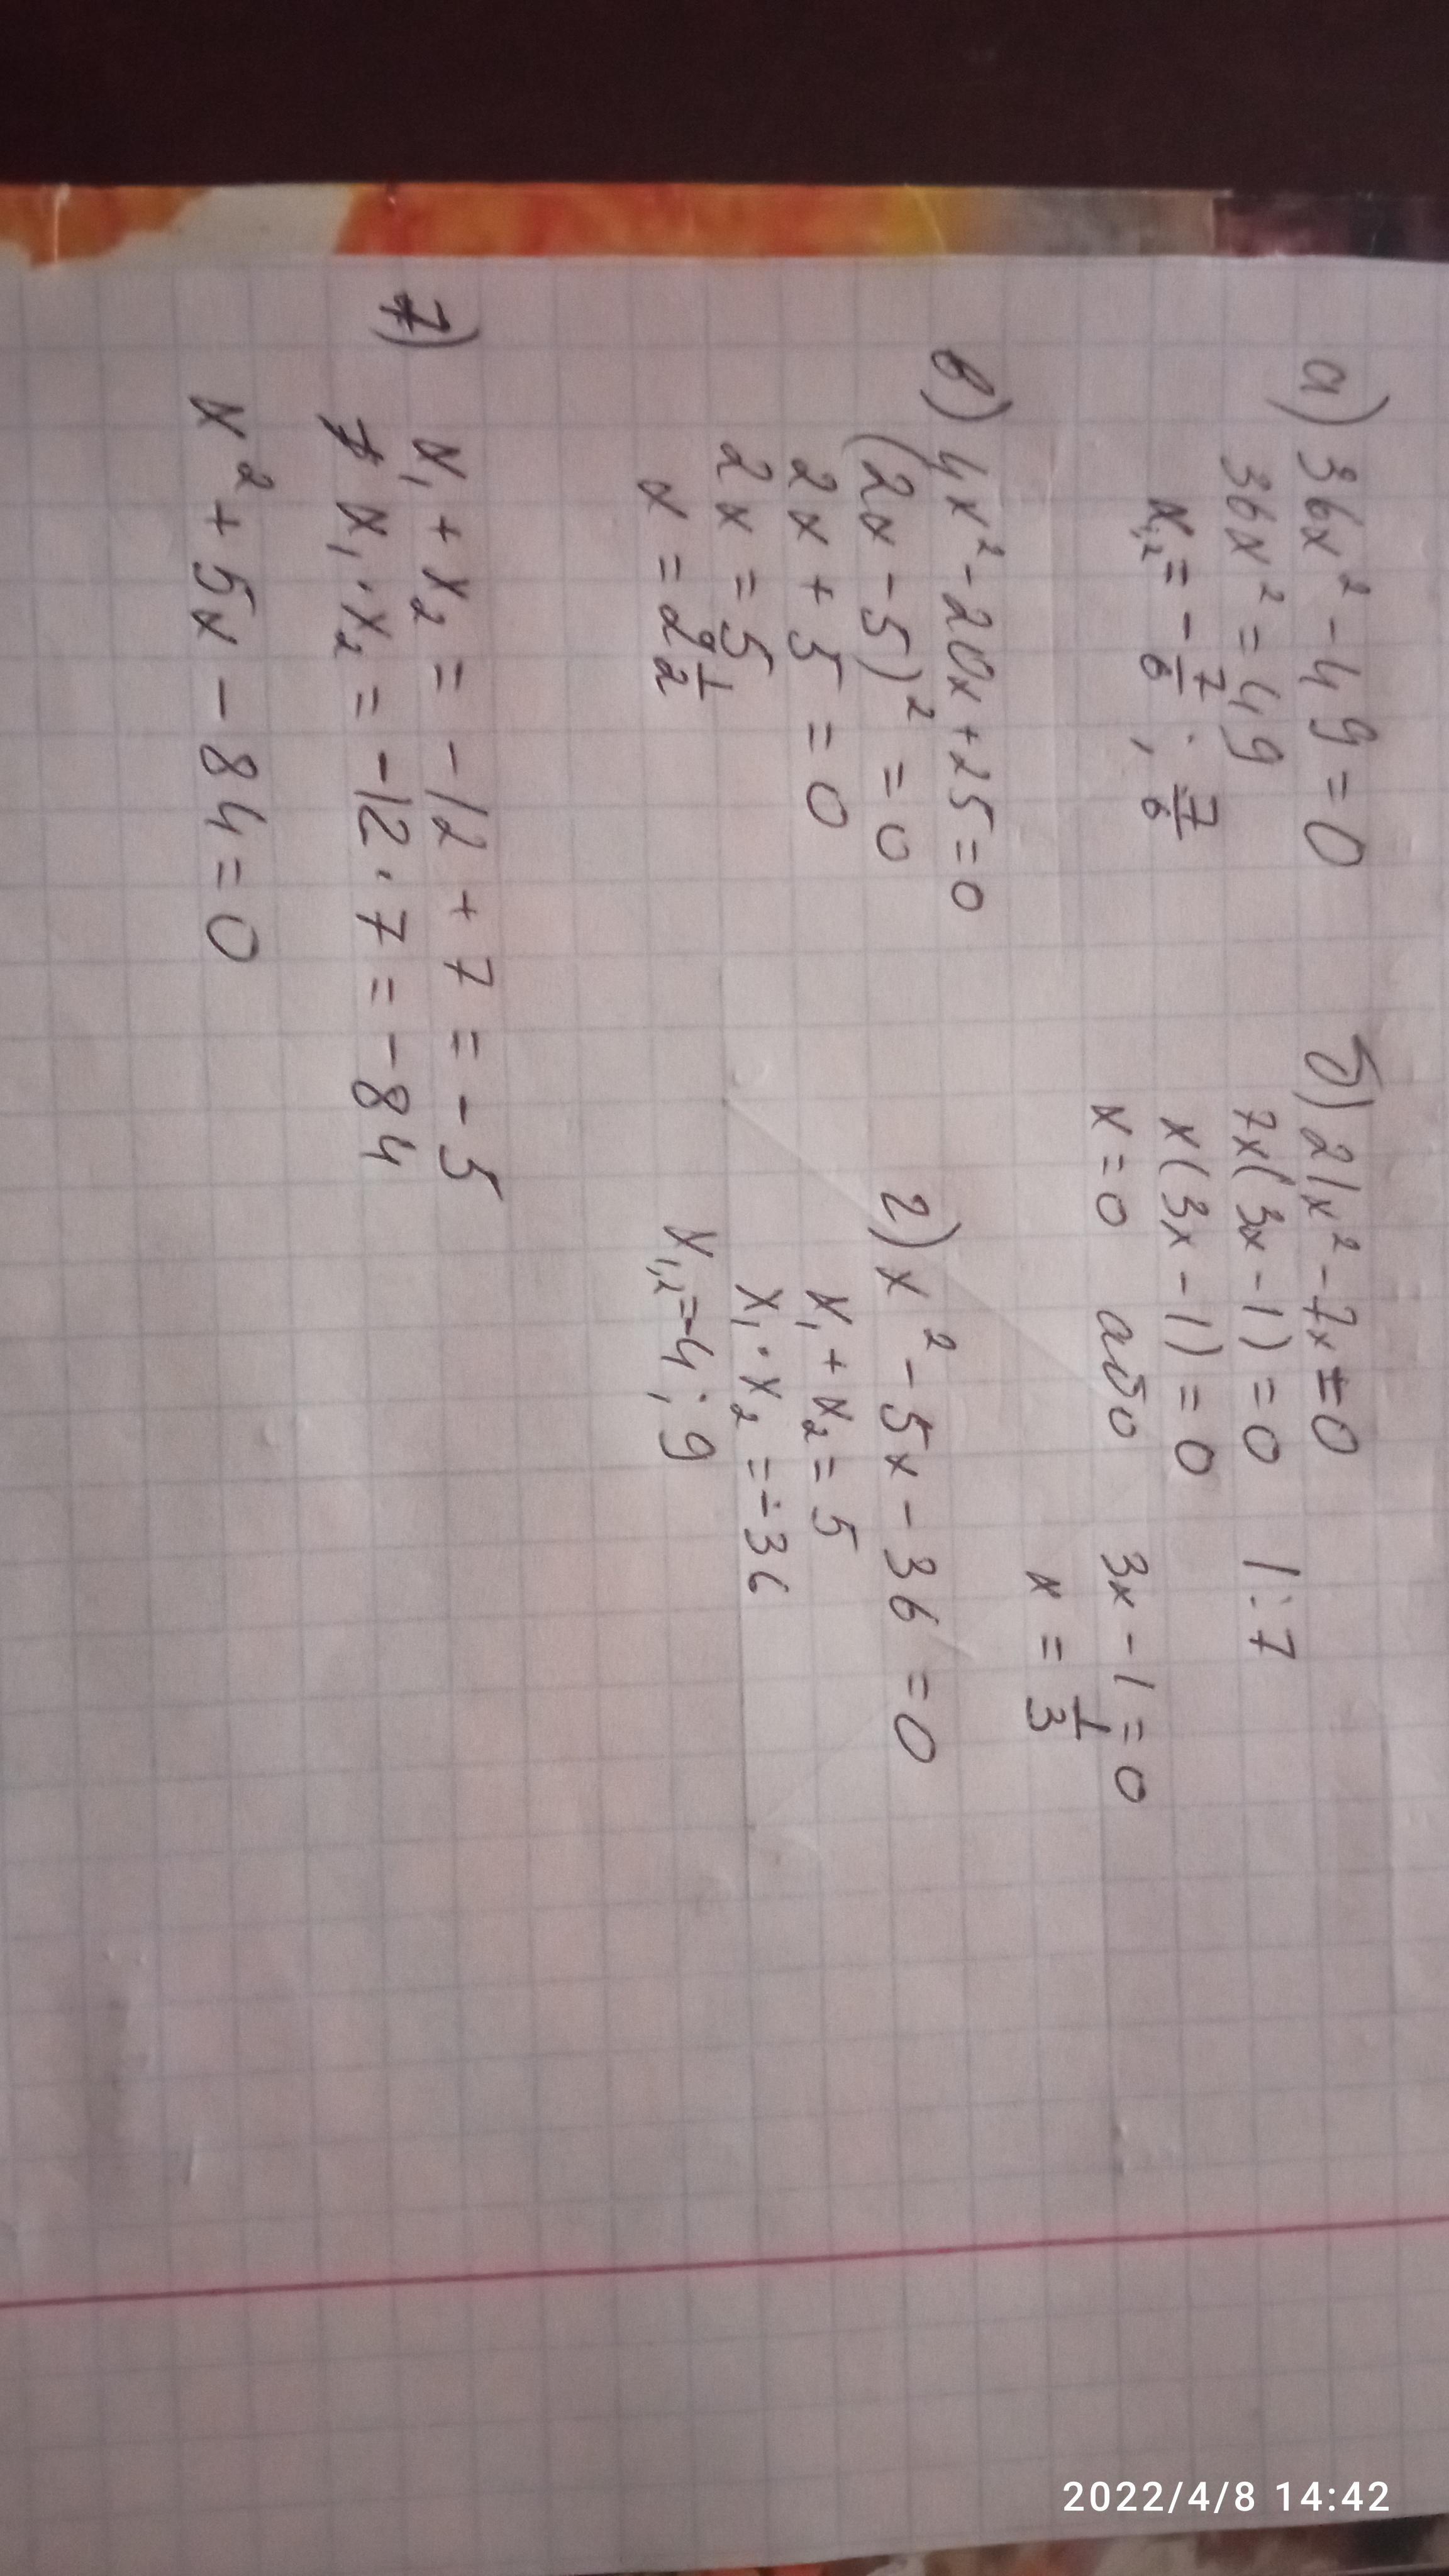 а) 36x² - 49 = 0
36x² = 49
x₁,₂ = -7/6 ; 7/6
б) 21x² - 7x = 0
7x(3x - 1) = 0 | : 7
x(3x - 1) = 0
x = 0 або 3x - 1 = 0
x = 1/3
в) 4x² - 20x + 25 = 0
(2x - 5)² = 0
2x + 5 = 0
2x = 5
x = 2 1/2
г) x² - 5x - 36 = 0
x₁ + x₂ = 5
x₁ · x₂ = -36
x₁,₂ = -4 ; 9
7) x₁ + x₂ = -12 + 7 = -5
x₁ · x₂ = -12 · 7 = -84
x² + 5x - 84 = 0
2022/4/8 14:42